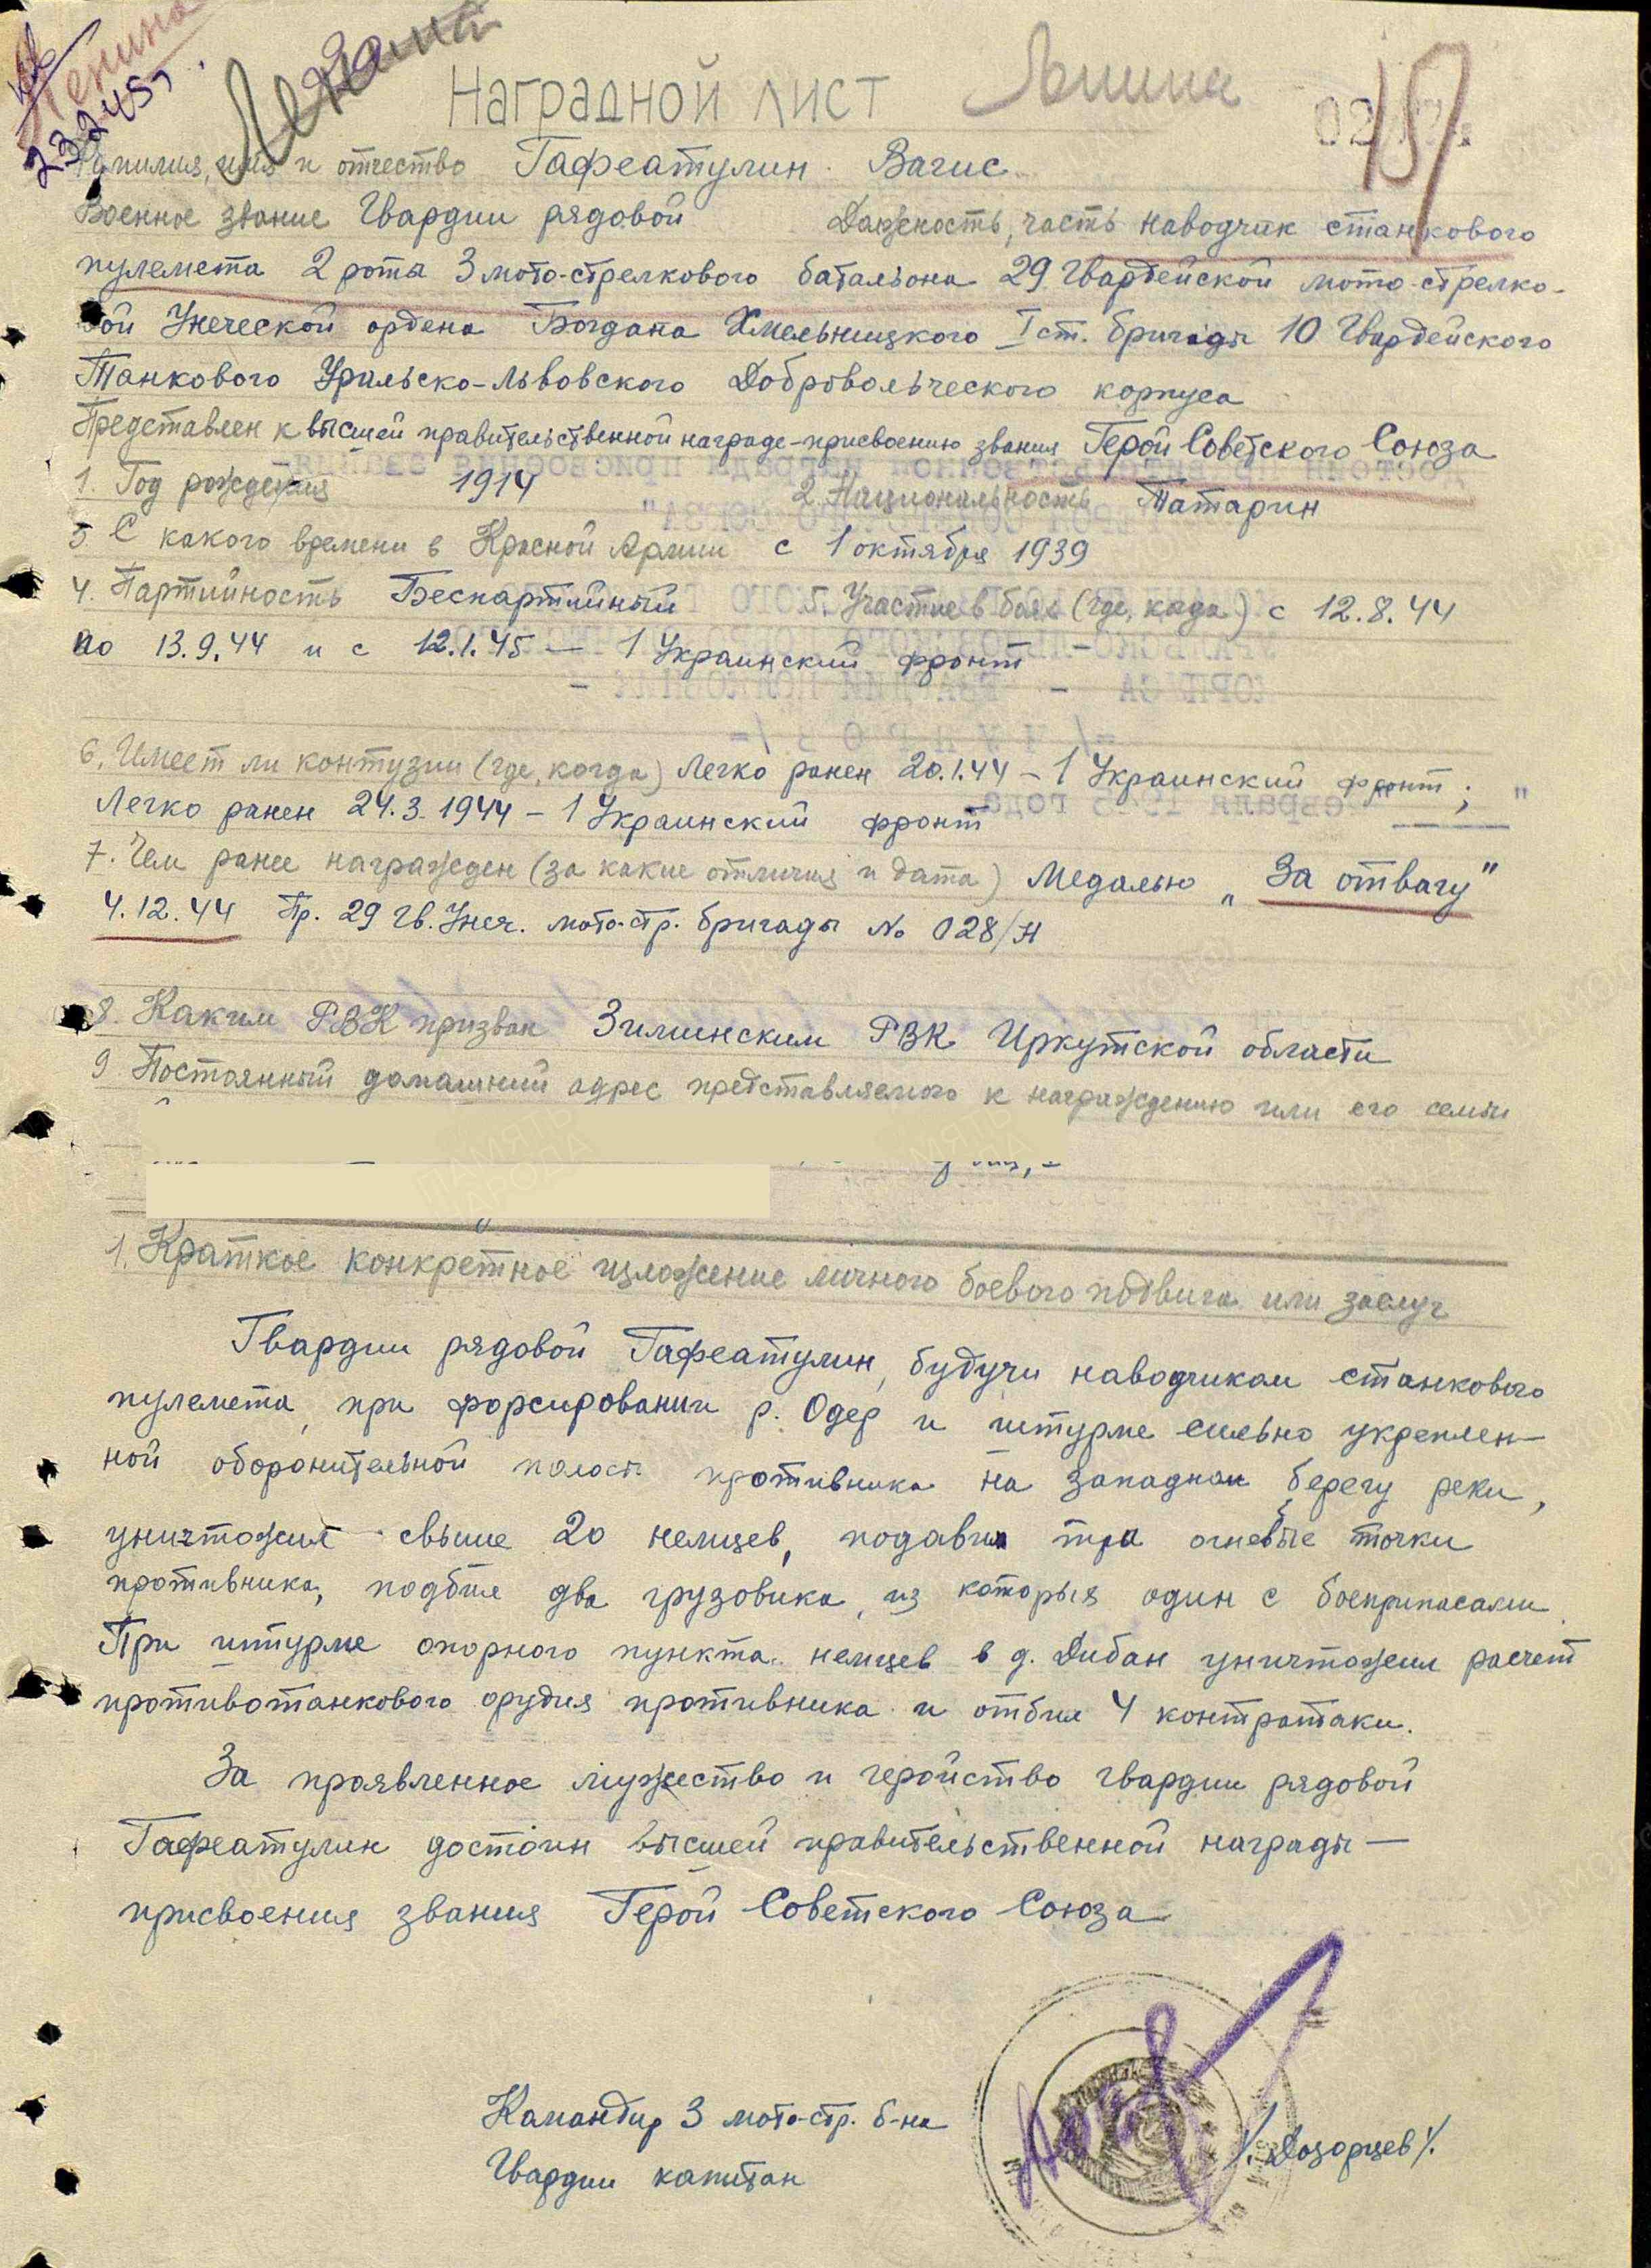 Ленина
23.2.45г.
Ленина
Наградной лист
Ленина
Фамилия, имя и отчество Гафеатулин Вагис
Военное звание Гвардии рядовой Должность, часть наводчик станкового
пулемета 2 роты 3 мото-стрелкового батальона 29 Гвардейской мото-стрелко-
вой Унеческой ордена Богдана Хмельницкого I ст. бригады 10 Гвардейского
Танкового Уральско-Львовского Добровольческого корпуса
Представлен к высшей правительственной награде-присвоению звания Герой Советского Союза
1. Год рождения 1914 2. Национальность Татарин
3 С какого времени в Красной Армии с 1 октября 1939
4. Партийность Беспартийный 5. Участие в боях (где, когда) с 12.8.44
по 13.9.44 и с 12.1.45 — 1 Украинский фронт
6. Имеет ли контузии (где, когда) Легко ранен 20.1.44 – 1 Украинский фронт;
Легко ранен 24.3.1944 – 1 Украинский фронт
7. Чем ранее награжден (за какие отличия и дата) Медалью „За отвагу"
4.12.44 Пр. 29 Гв. Унеч. мото-стр. бригады № 028/н
8. Каким РВК призван Зиминским РВК Иркутской области
9 Постоянный домашний адрес представляемого к награждению или его семьи
1. Краткое конкретное изложение личного боевого подвига или заслуг
Гвардии рядовой Гафеатулин, будучи наводчиком станкового
пулемета, при форсировании р. Одер и штурме сильно укреплен-
ной оборонительной полосы противника на западном берегу реки,
уничтожил свыше 20 немцев, подавил три огневые точки
противника, подбил два грузовика, из которых один с боеприпасами.
При штурме опорного пункта немцев в д. Дибан уничтожил расчет
противотанкового орудия противника и отбил 4 контратаки.
За проявленное мужество и геройство гвардии рядовой
Гафеатулин достоин высшей правительственной награды —
присвоения звания Герой Советского Союза
Командир 3 мото-стр. б-на
Гвардии капитан /Дозорцев/.